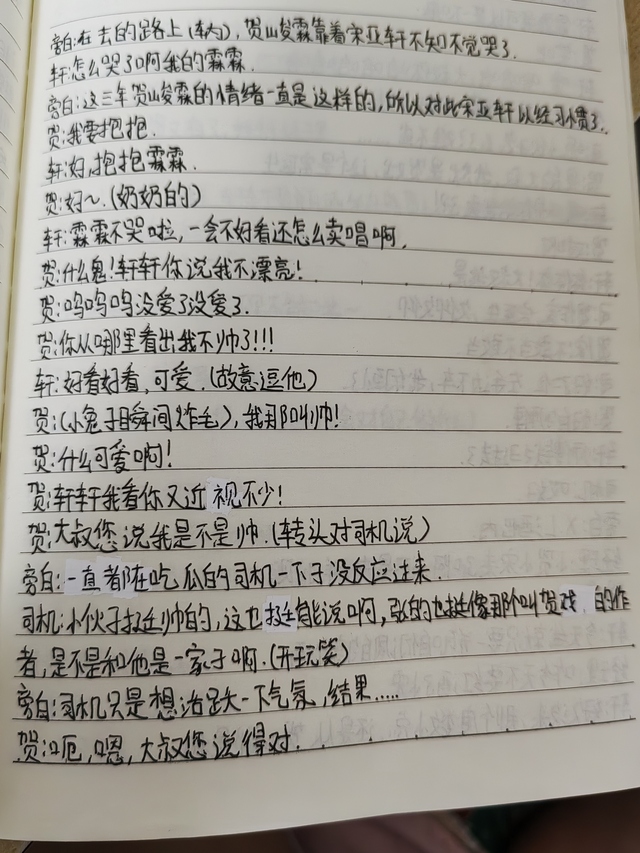 旁白:在去的路上(车内),贺峻霖靠着宋亚轩不知不觉哭了.
轩:怎么哭了啊我的霖霖.
旁白:这三年贺峻霖的情绪一直是这样的,所以对此宋亚轩以经习惯了.
贺:我要抱抱.
轩:好,抱抱霖霖.
贺:好~.(奶奶的)
轩:霖霖不哭啦,一会不好看还怎么卖唱啊,
贺:什么鬼!轩轩你说我不漂亮!
贺:呜呜呜没爱了没爱了.
贺:你从哪里看出我不帅了!!!
轩:好看好看,可爱.(故意逗他)
贺:(小兔子瞬间炸毛),我那叫帅!
贺:什么可爱啊!
贺:轩轩我看你又近视不少!
贺:大叔您说我是不是帅.(转头对司机说)
旁白:一直都在吃瓜的司机一下子没反应过来.
司机:小伙子挺帅的,这也挺能说啊,张的也挺像那个叫贺戏 的作
者,是不是和他是一家子啊.(开玩笑)
旁白:司机只是想活跃一下气氛,结果.....
贺:呃,嗯,大叔您说得对.